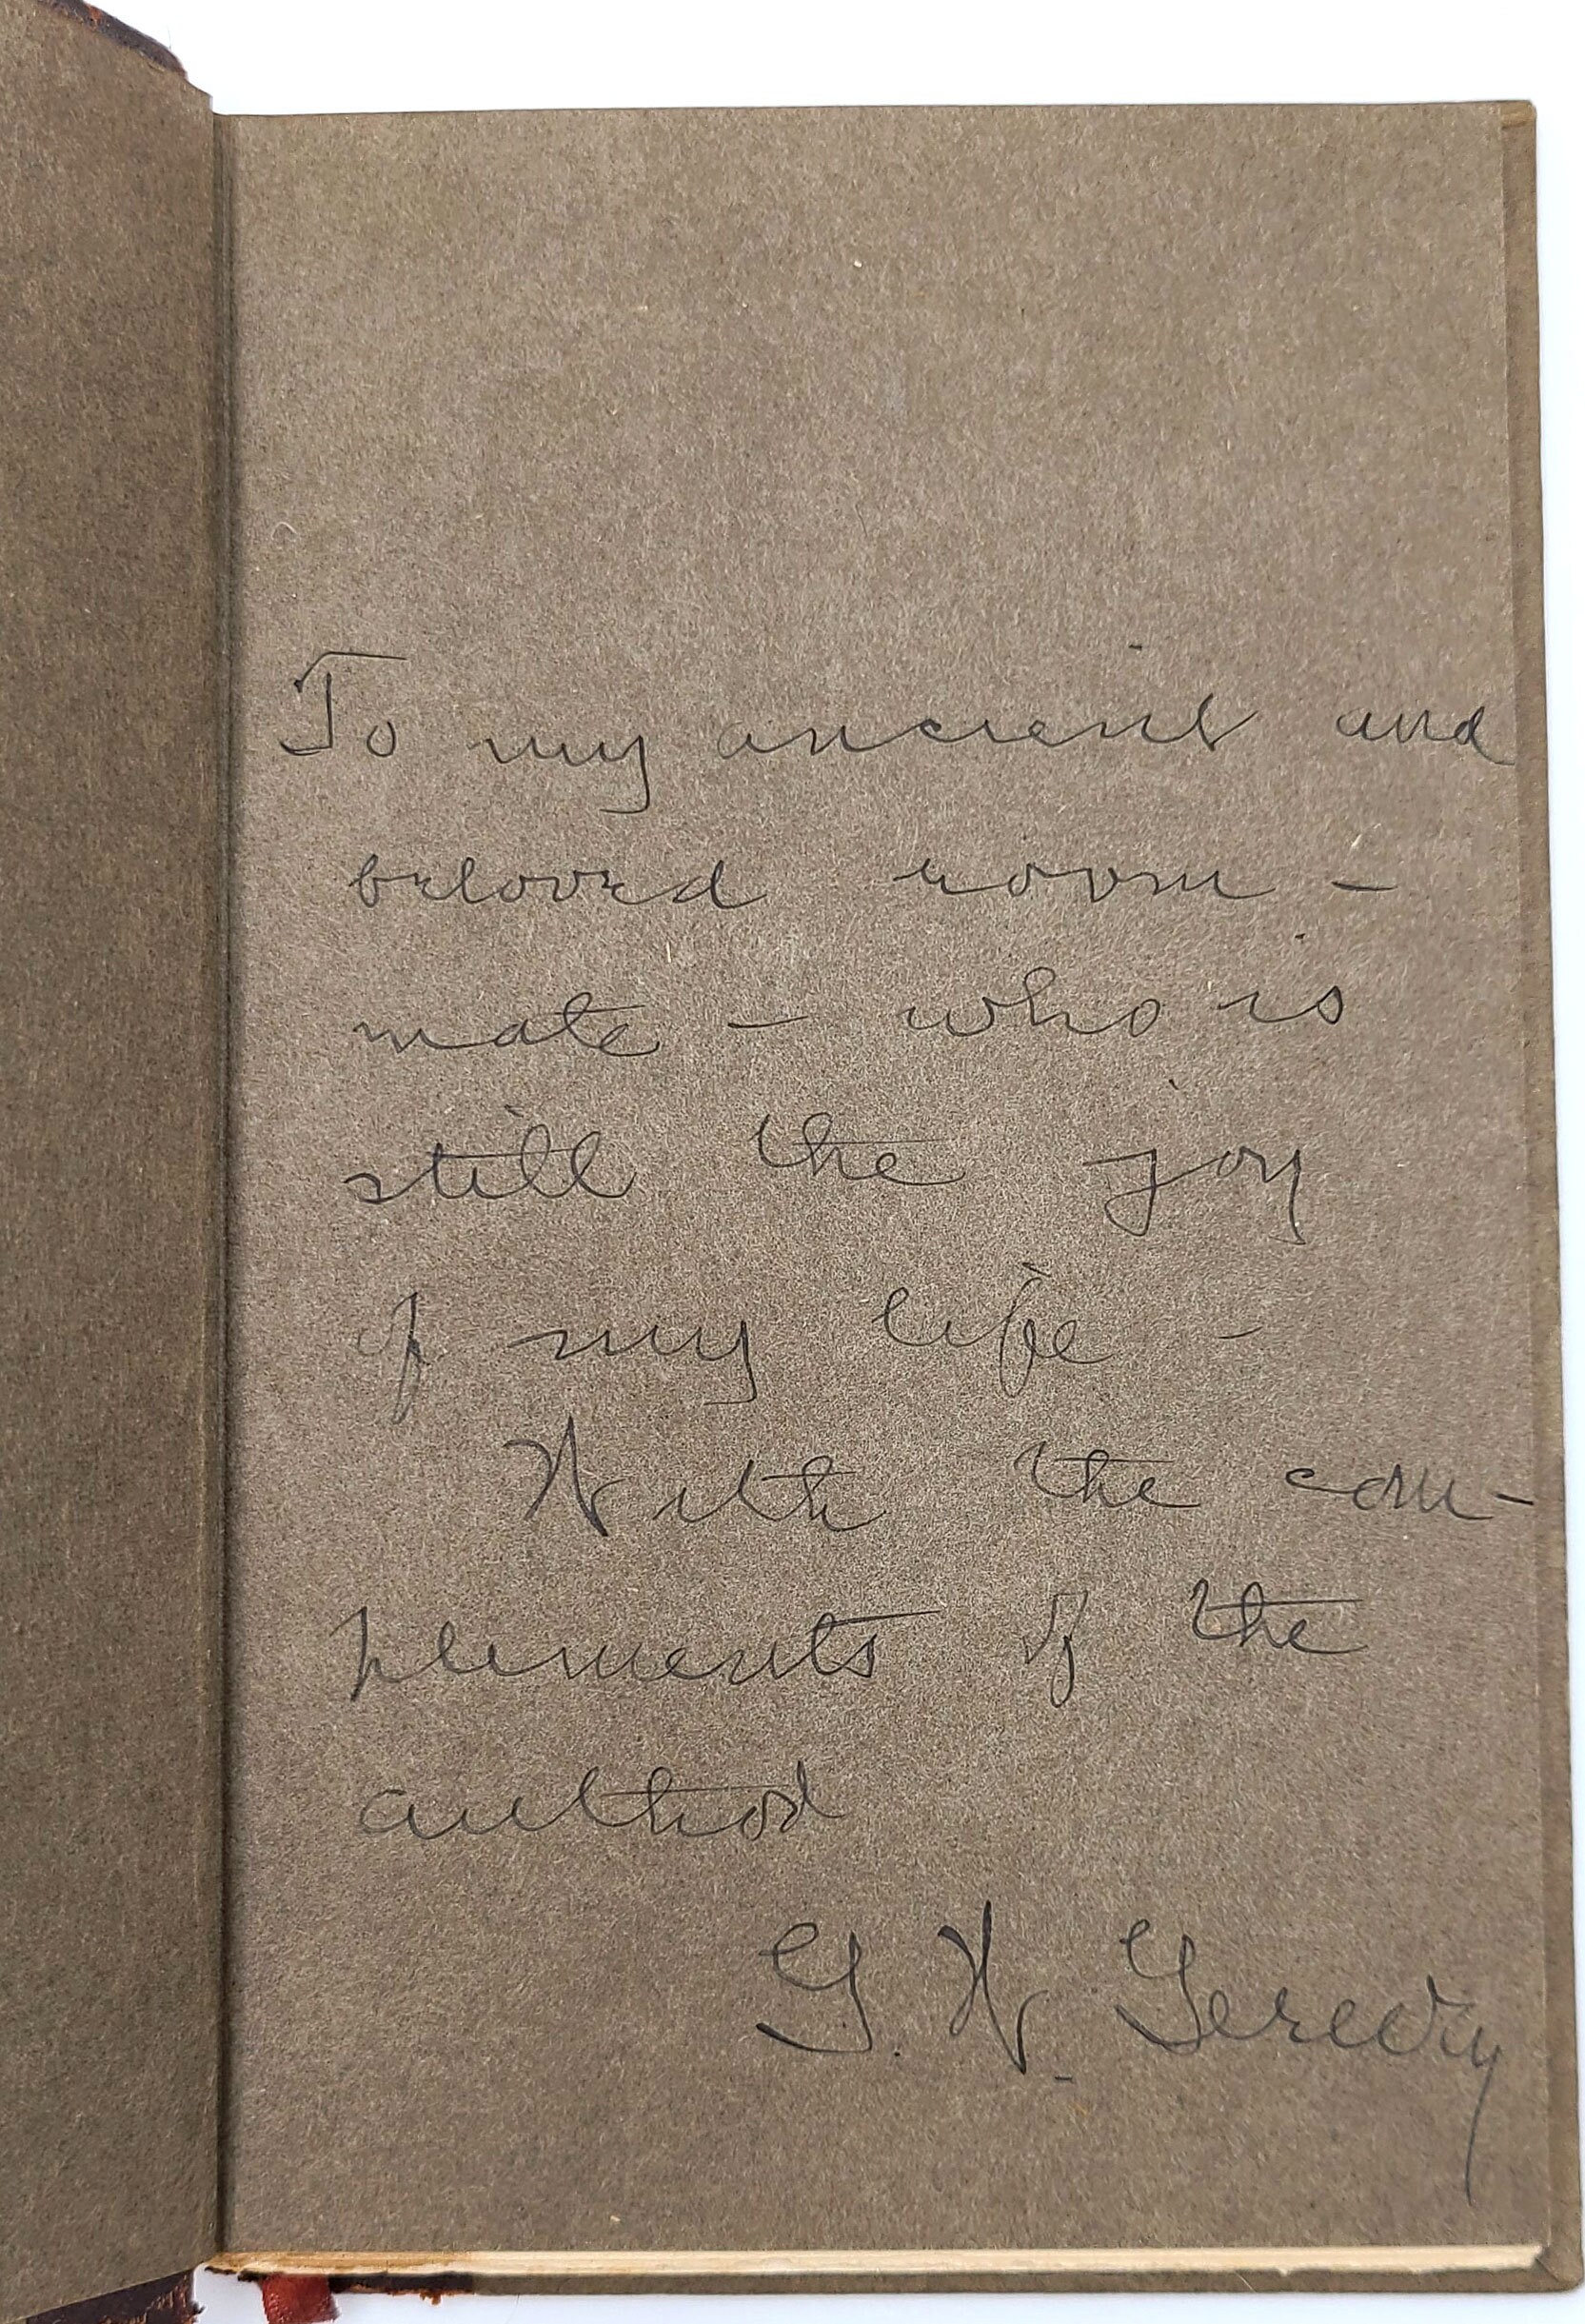 To my ancient and
beloved room -
mate - who is
still the joy
of my life -
With the com-
plements of the
author
G. W.